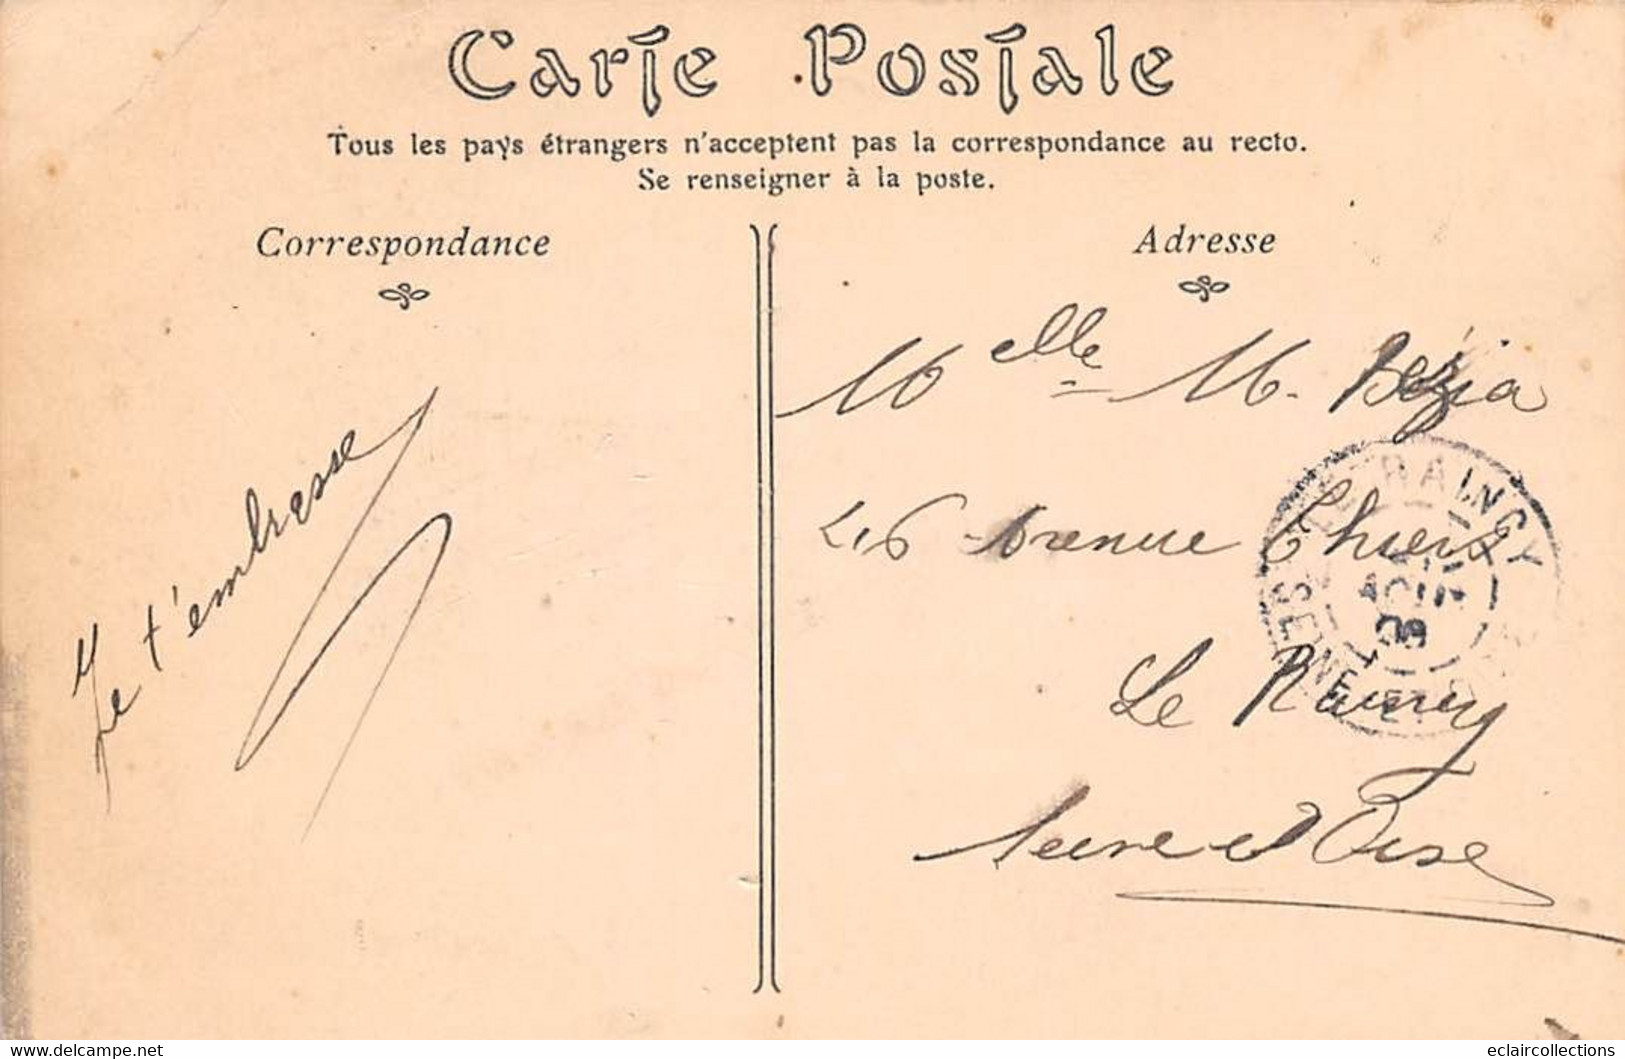 Carte Postale
Tous les pays étrangers n'acceptent pas la correspondance au recto.
Se renseigner à la poste.
Correspondance
Adresse
Je t'embrasse
Melle M. Bézia
46 Avenue Thiers
Le Raincy
Seine et Oise
LE RAINCY
AOUT
09
SEINE ET OISE
delcampe.net
eclaircollections